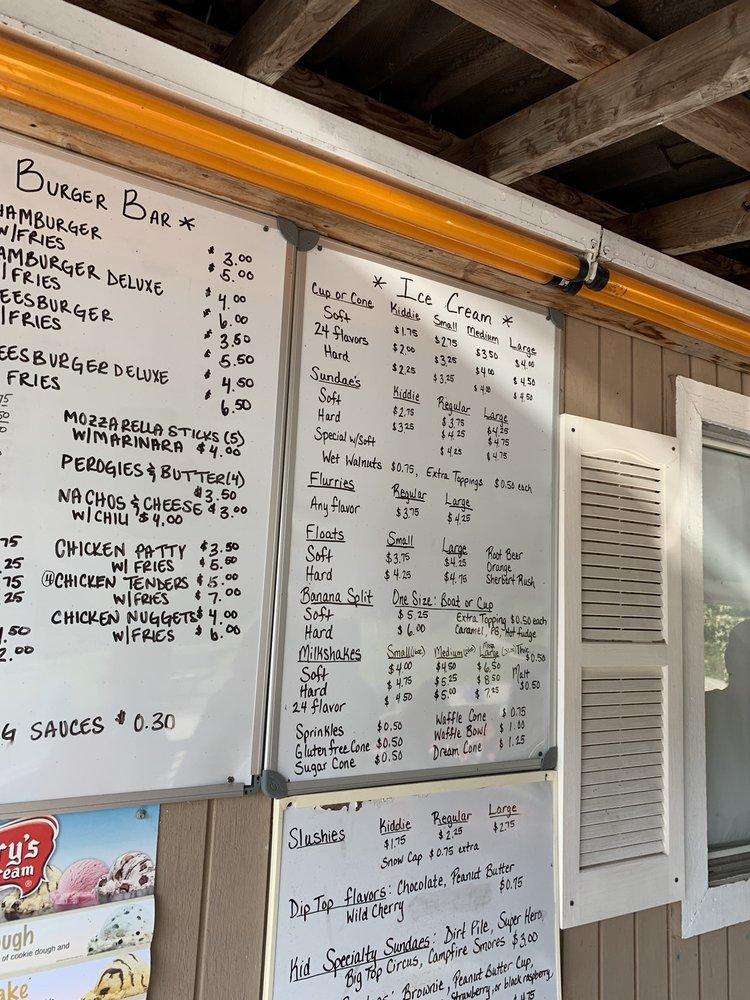 BURGER BAR *
HAMBURGER $ 3.00
W/FRIES $ 5.00
HAMBURGER DELUXE $ 4.00
W/FRIES $ 6.00
CHEESBURGER $ 3.50
W/FRIES $ 5.50
CHEESBURGER DELUXE $ 4.50
FRIES $ 6.50
MOZZARELLA STICKS (5)
W/MARINARA $ 4.00
PEROGIES & BUTTER (4)
$ 3.50
NACHOS & CHEESE $ 3.00
W/CHILI $ 4.00
CHICKEN PATTY $ 3.50
W/ FRIES $ 5.50
(4) CHICKEN TENDERS $ 5.00
W/FRIES $ 7.00
CHICKEN NUGGETS $ 4.00
W/FRIES $ 6.00
SAUCES $ 0.30
* Ice Cream *
Cup or Cone Kiddie Small Medium Large
Soft $1.75 $2.75 $3.50 $4.00
24 flavors $2.00 $3.25 $4.00 $4.50
Hard $2.25 $3.25 $4.50
Sundae's Kiddie Regular Large
Soft $2.75 $3.75 $4.25
Hard $3.25 $4.25 $4.75
Special w/Soft $4.25 $4.75
Wet Walnuts $0.75, Extra Toppings $0.50 each
Flurries Regular Large
Any flavor $3.75 $4.25
Floats Small Large Root Beer
Soft $3.75 $4.25 Orange
Hard $4.25 $4.75 Sherbert Rush
Banana Split One Size: Boat or Cup
Soft $5.25 Extra Topping $0.50 each
Hard $6.00 Caramel, PB, Hot fudge
Milkshakes Small Medium Large Thic $0.50
Soft $4.00 $4.50 $6.50 Malt
Hard $4.75 $5.25 $8.50 $0.50
24 flavor $4.50 $5.00 $7.25
Sprinkles $0.50 Waffle Cone $0.75
Gluten free Cone $0.50 Waffle Bowl $1.00
Sugar Cone $0.50 Dream Cone $1.25
Slushies Kiddie Regular Large
$1.75 $2.25 $2.75
Snow Cap $0.75 extra
Dip Top flavors: Chocolate, Peanut Butter
Wild Cherry $0.75
Kid Specialty Sundaes: Dirt Pile, Super Hero,
Big Top Circus, Campfire Smores $3.00
Brownie, Peanut Butter Cup,
Strawberry, or black raspberry,
4.75
ry's
eam
ugh
of cookie dough and
ake